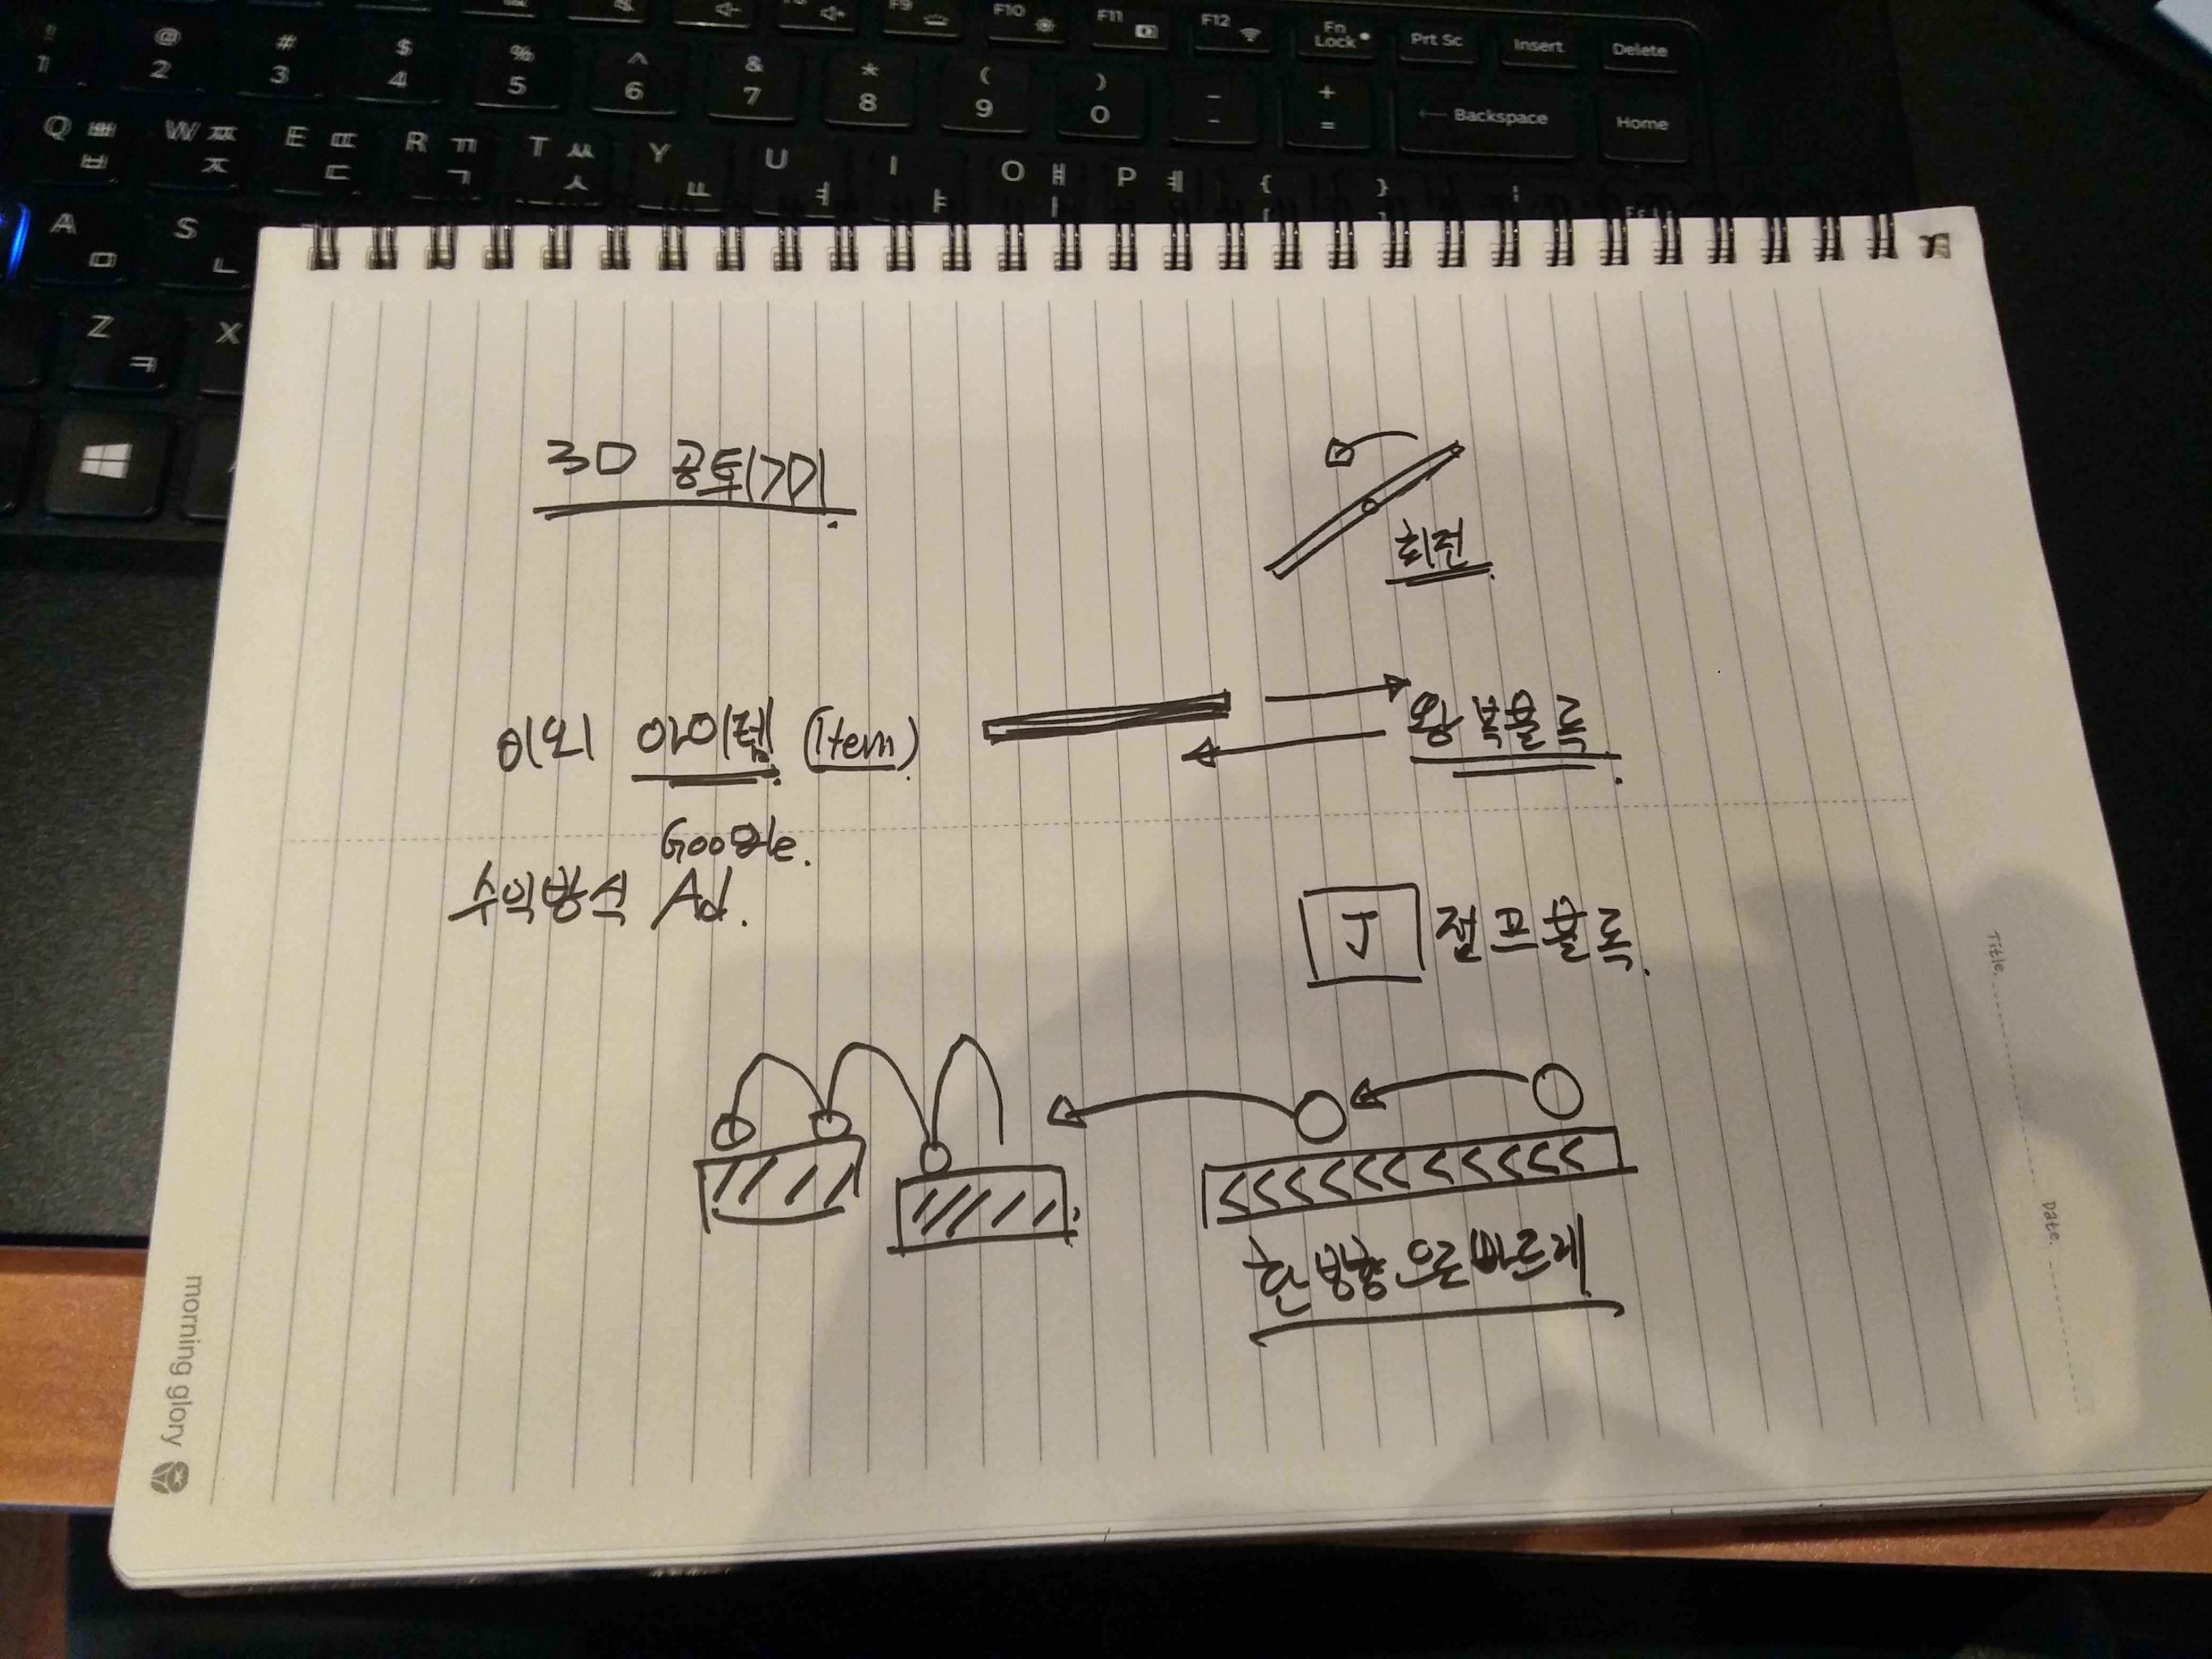 F9 F10 F11 F12 Fn Lock Prt Sc Insert Delete
! 1 @ 2 # 3 $ 4 % 5 ^ 6 & 7 * 8 ( 9 ) 0 _ - + = ← Backspace Home
Q ㅃ ㅂ W ㅉ ㅈ E ㄸ ㄷ R ㄲ ㄱ T ㅆ ㅅ Y ㅛ U ㅕ I ㅑ O ㅒ ㅐ P ㅖ ㅔ { [ } ]
A ㅁ S ㄴ
Z ㅋ X
3D 공튀기기
회전
이외 아이템 (Item)
왕복블록
Google.
수익방식 Ad.
J 점프블록.
한 방향으로 빠르게
Title.
Date.
morning glory